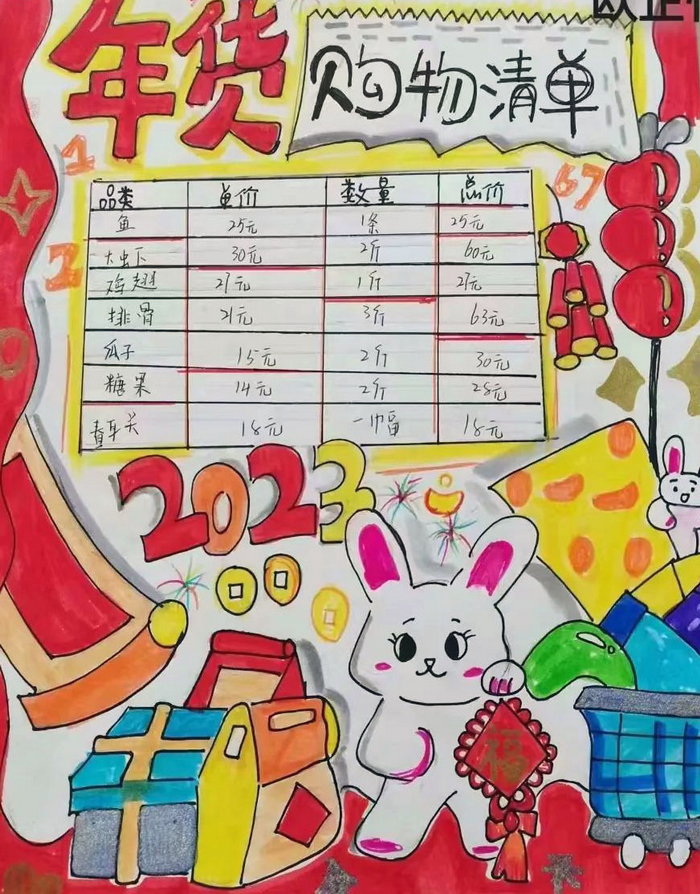 年货
购物清单
1
2
67
品类 单价 数量 总价
鱼 25元 1条 25元
大虾 30元 2斤 60元
鸡翅 1斤
排骨 21元 3斤 63元
瓜子 15元 2斤 30元
糖果 14元 2斤 28元
18元 18元
2023
福